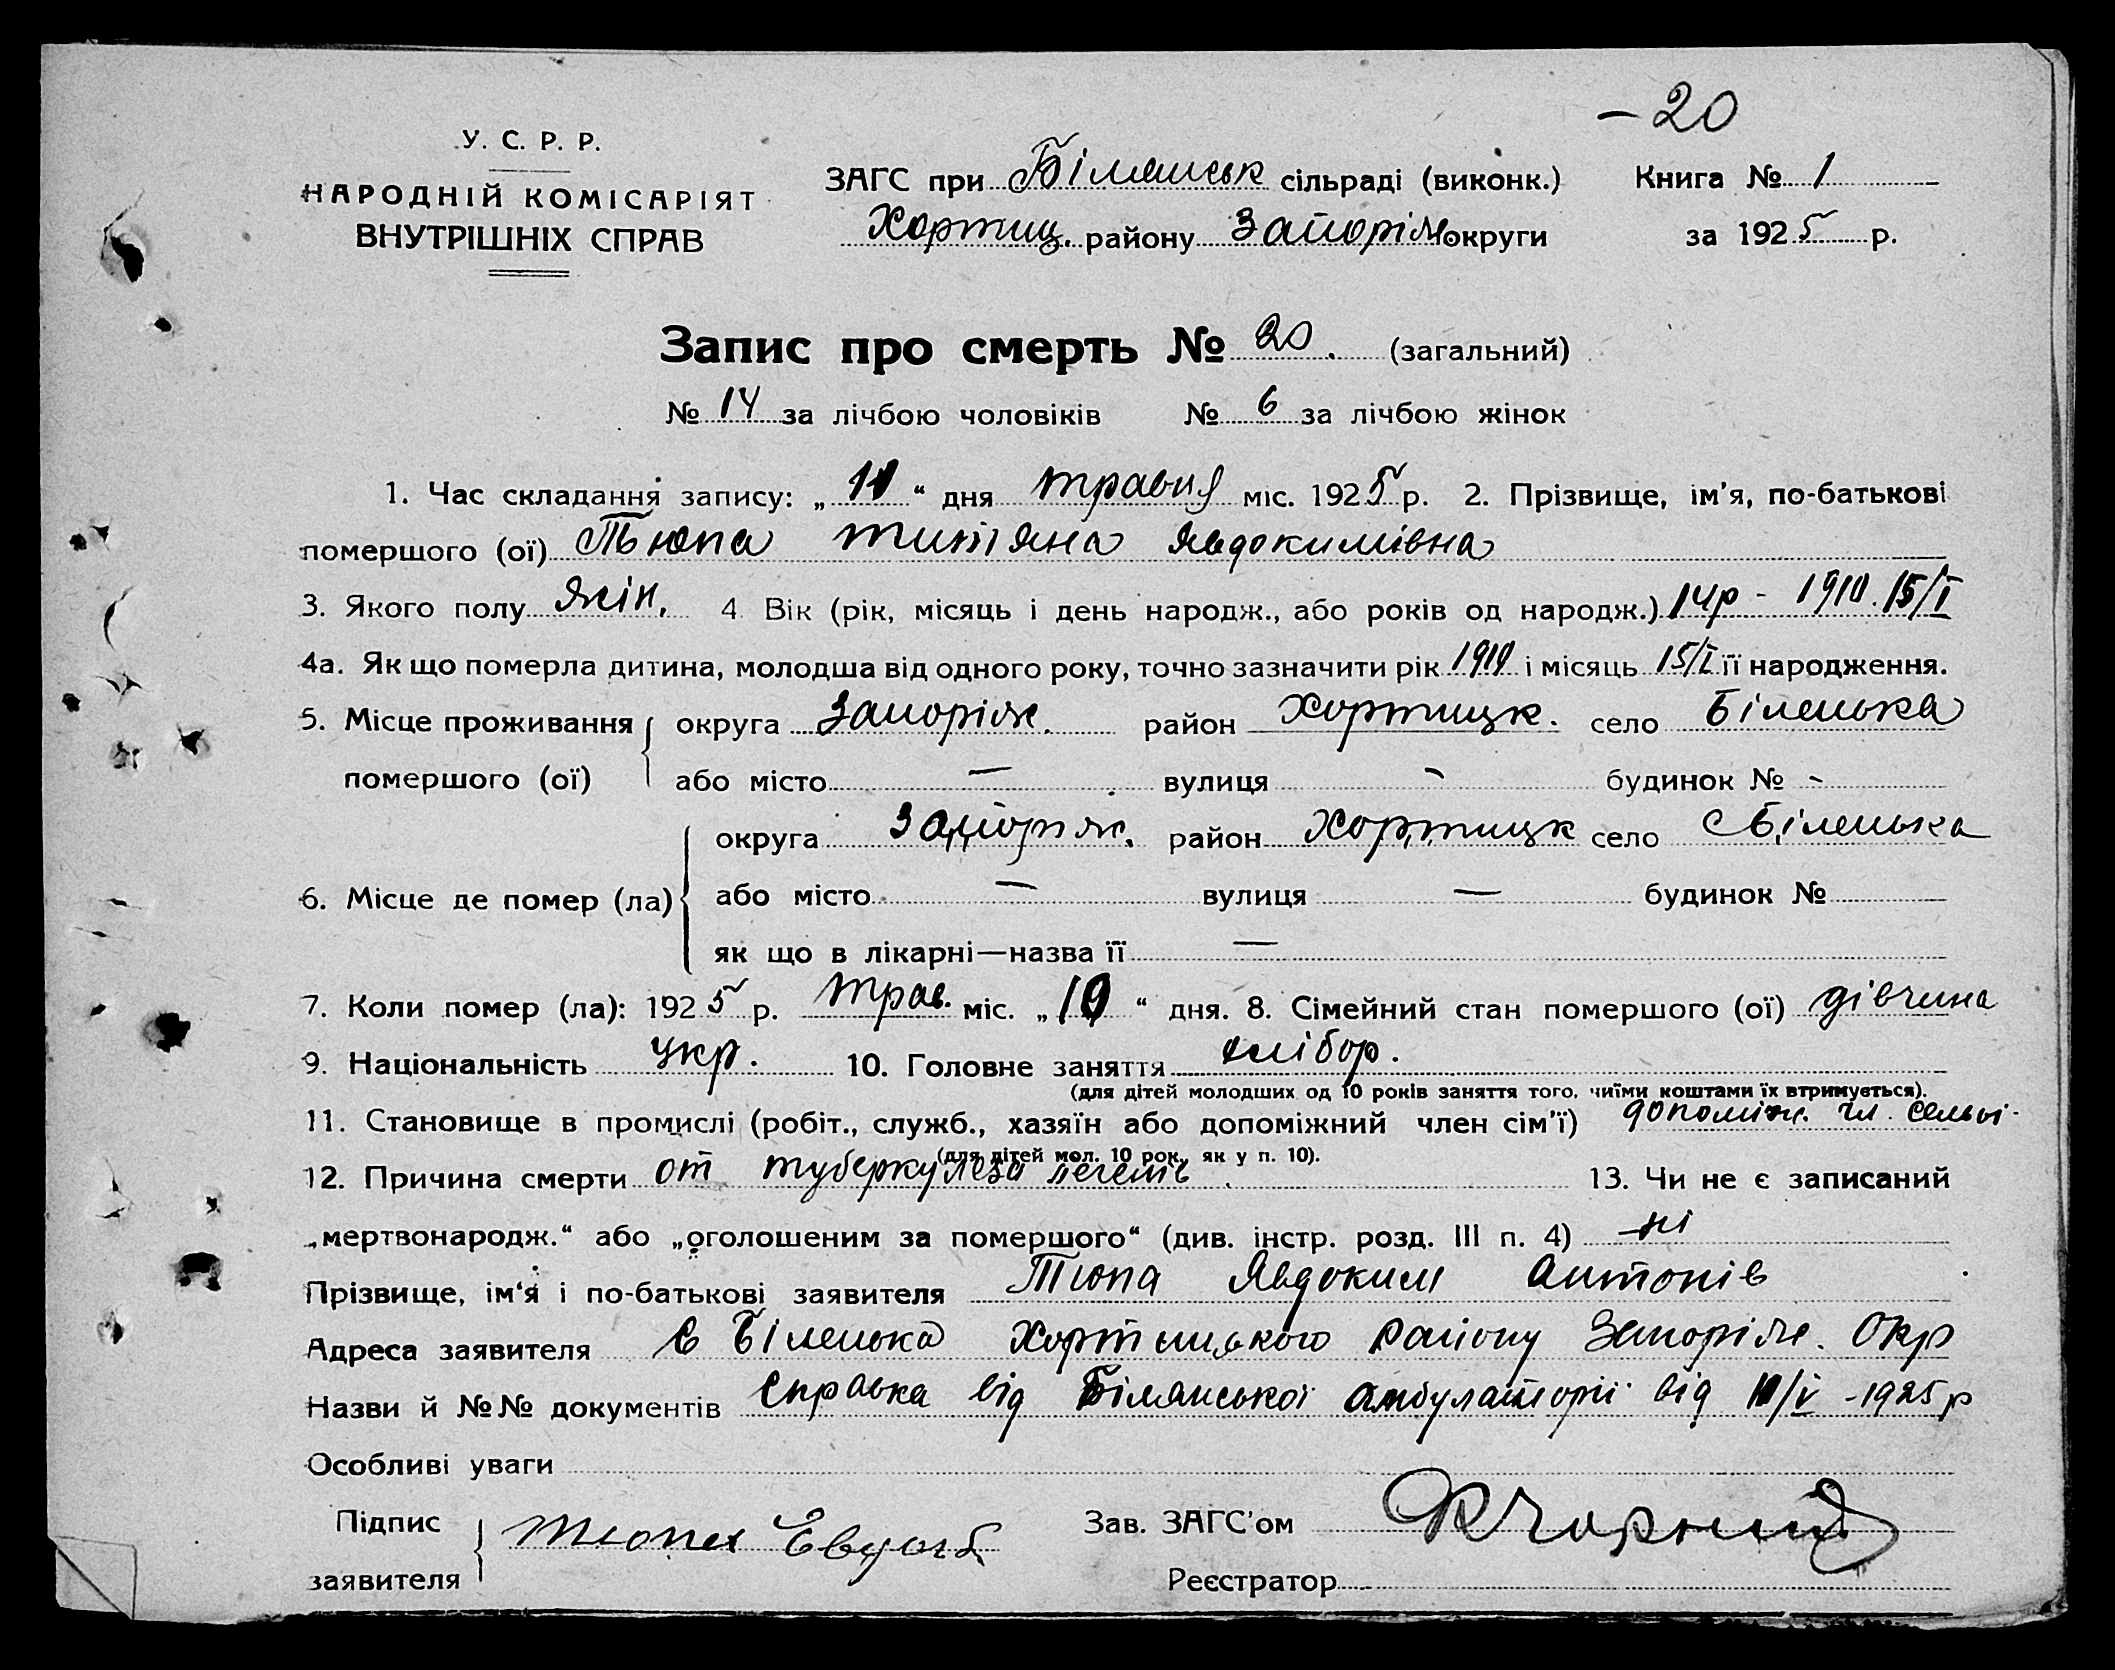 -20
У. С. Р. Р.
НАРОДНІЙ КОМІСАРІЯТ
ВНУТРІШНІХ СПРАВ
ЗАГС при Біленськ сільраді (виконк.) Книга № 1
Хортиц. району Запоріж округи за 1925 р.
Запис про смерть № 20. (загальний)
№ 14 за лічбою чоловіків № 6 за лічбою жінок
1. Час складання запису: „ “ дня травня міс. 1925 р. 2. Прізвище, ім'я, по-батькові
помершого (ої) Тюпа Титіяна Явдокимівна
3. Якого полу жін. 4. Вік (рік, місяць і день народж., або років од народж.) 14р - 1910. 15/I
4а. Як що померла дитина, молодша від одного року, точно зазначити рік 1910 і місяць 15/I її народження.
5. Місце проживання округа Запоріж. район Хортицк. село Біленька
помершого (ої) або місто — вулиця - будинок № -
округа Запоріж. район Хортицк село Біленька
6. Місце де помер (ла) або місто — вулиця — будинок №
як що в лікарні—назва її —
7. Коли помер (ла): 1925 р. трав. міс. „10“ дня. 8. Сімейний стан помершого (ої) дівчина
9. Національність укр. 10. Головне заняття хлібор.
(для дітей молодших од 10 років заняття того, чиїми коштами їх втримується).
11. Становище в промислі (робіт., служб., хазяїн або допоміжний член сім'ї) допоміж. чл. семьі
(для дітей мол. 10 рок., як у п. 10).
12. Причина смерти от туберкулеза легенів. 13. Чи не є записаний
„мертвонародж.“ або „оголошеним за помершого“ (див. інстр. розд. III п. 4) ні
Прізвище, ім'я і по-батькові заявителя Тюпа Явдоким Антонів
Адреса заявителя с Біленька Хортицького району Запоріж. Окр
Назви й №№ документів Справка від Білянської амбулаторії від 10/V -1925 р
Особливі уваги
Підпис
заявителя Тюпа
Зав. ЗАГС'ом Чорний
Реєстратор